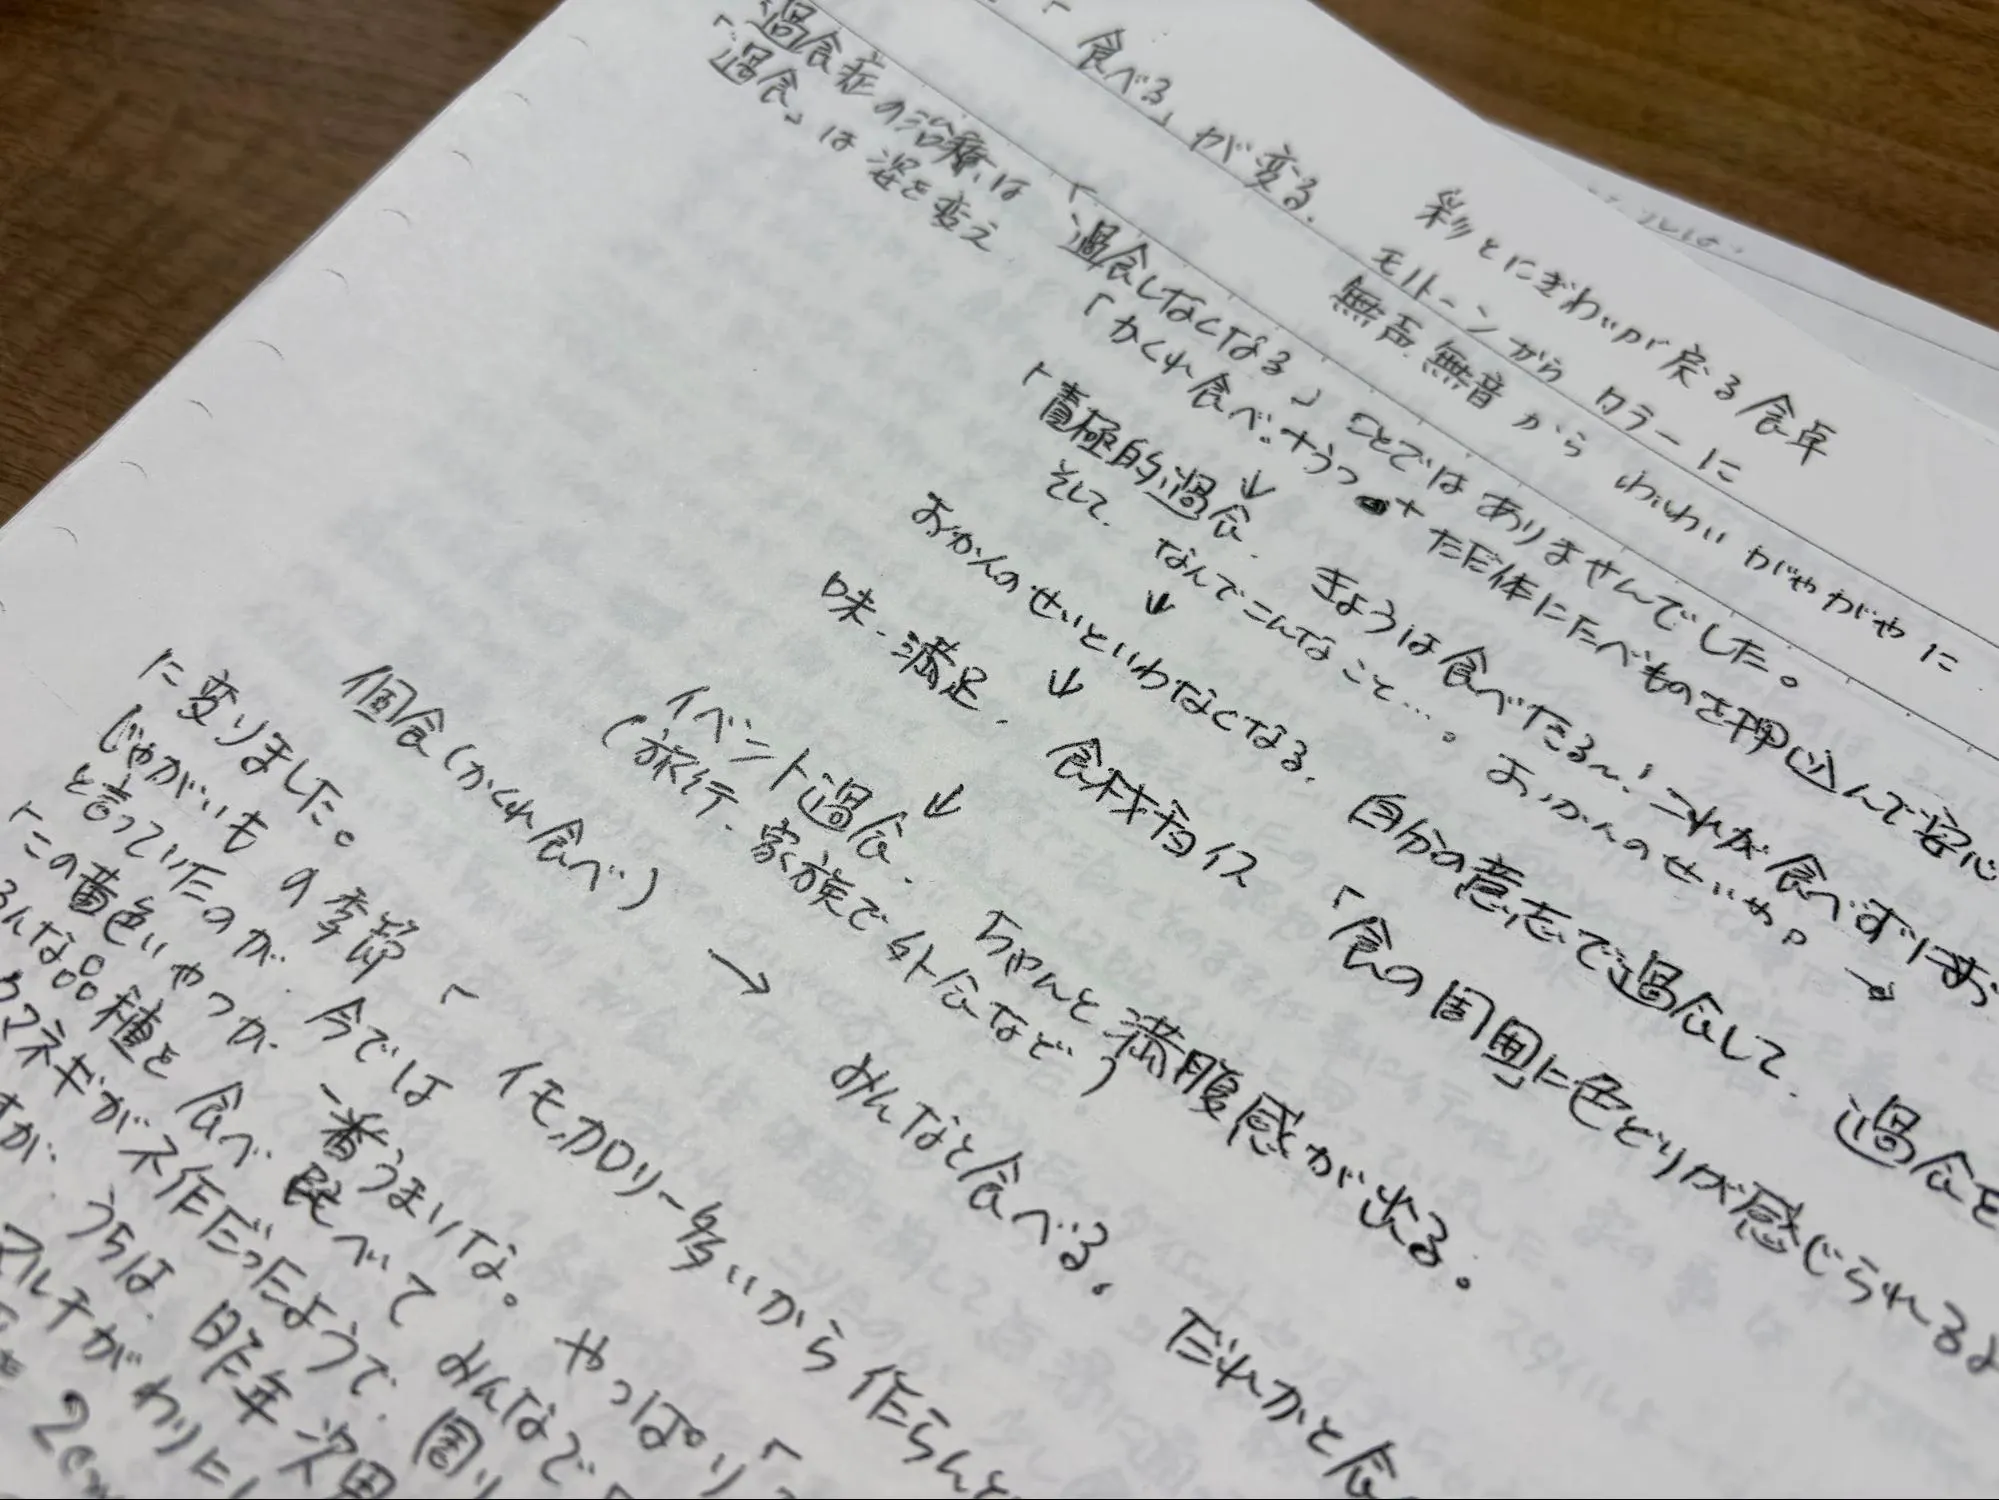 「食べる」が変る。 彩とにぎわいが戻る食卓
モノトーンから カラーに
無声 無音 から わいわい がやがやに
「過食症の治療は 「過食しなくなる」ことではありませんでした。
「過食」は 姿を変え 「かくれ食べ・ ただ体にたべものを押込んで安心
↓
「積極的過食. きょうは食べたる〜! これが食べずにお
そして. なんでこんなこと…。 おかんのせいや。 →
↓
おかんのせいといわなくなる. 自分の意志で過食して. 過食を
↓
味・満足. 食材チョイス 「食の周囲に色どりが感じられるよ
↓
イベント過食. ちゃんと満腹感が出る.
(旅行. 家族で外食など)
個食(かくれ食べ) → みんなと食べる. だれかと食
に変りました。
じゃがいもの季節 「イモ,カロリー多いから作らんと
と言っていたのが. 今では やっぱり「
「この黄色いやつが. 一番うまいな。
ろんな品種を食べ べて みんなで
タマネギが不作だったようで. 周り
すが. うちは. 昨年 次男
マルチがわりに
2cm